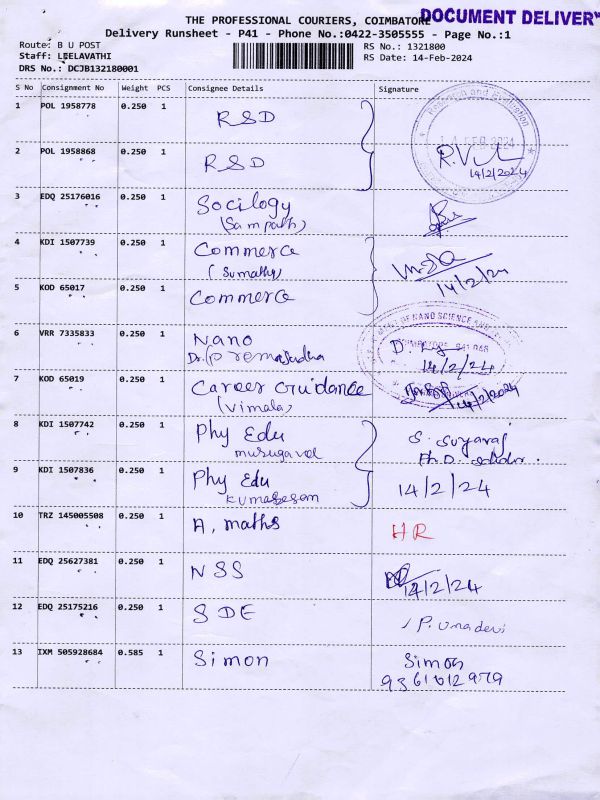 THE PROFESSIONAL COURIERS, COIMBATORE
DOCUMENT DELIVER
Delivery Runsheet - P41 - Phone No.:0422-3505555 - Page No.:1
Route: B U POST
RS No.: 1321800
Staff: LEELAVATHI
RS Date: 14-Feb-2024
DRS No.: DCJB132180001
S No Consignment No Weight PCS Consignee Details Signature
1 POL 1958778 0.250 1 RSD
2 POL 1958868 0.250 1 RSD
14/2/2024
3 EDQ 25176016 0.250 1 Socilogy
(Sampath)
4 KDI 1507739 0.250 1 Commerce
(Sumathy)
14/2/24
5 KOD 65017 0.250 1 Commerce
NANO SCIENCE
6 VRR 7335833 0.250 1 Nano
Dr. (
14/2/24
7 KOD 65019 0.250 1 Career Guidance
14/2/2024
(Vimala)
8 KDI 1507742 0.250 1 Phy Edu
S. Suyaraj
murugavel
Ph.D.
9 KDI 1507836 0.250 1 Phy Edu 14/2/24
Kumaresam
10 TRZ 145005508 0.250 1 A. maths HR
11 EDQ 25627381 0.250 1 NSS 14/2/24
12 EDQ 25175216 0.250 1 SDE P. Umadevi
13 IXM 505928684 0.585 1 Simon Simon
9361012979